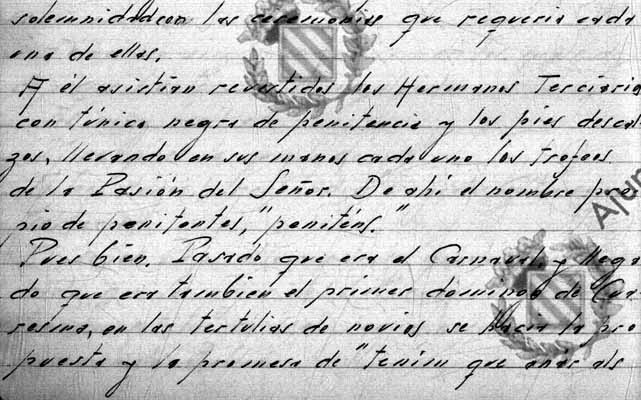 solemnidad con las ceremonias que requeria cada
una de ellas.
A él asistian revestidos los Hermanos Terciario
con túnica negra de penitencia y los pies descal
zos, llevando en sus manos cada uno los trofeos
de la Pasión del Señor. De ahi el nombre pro
pio de penitentes, "peniténs."
Pues bien. Pasado que era el Carnaval y llega
do que era tambien el primer domingo de Cua
resma, en las tertulias de novios se hacia la pro
puesta y la promesa de "tenim que anar als
Ajun